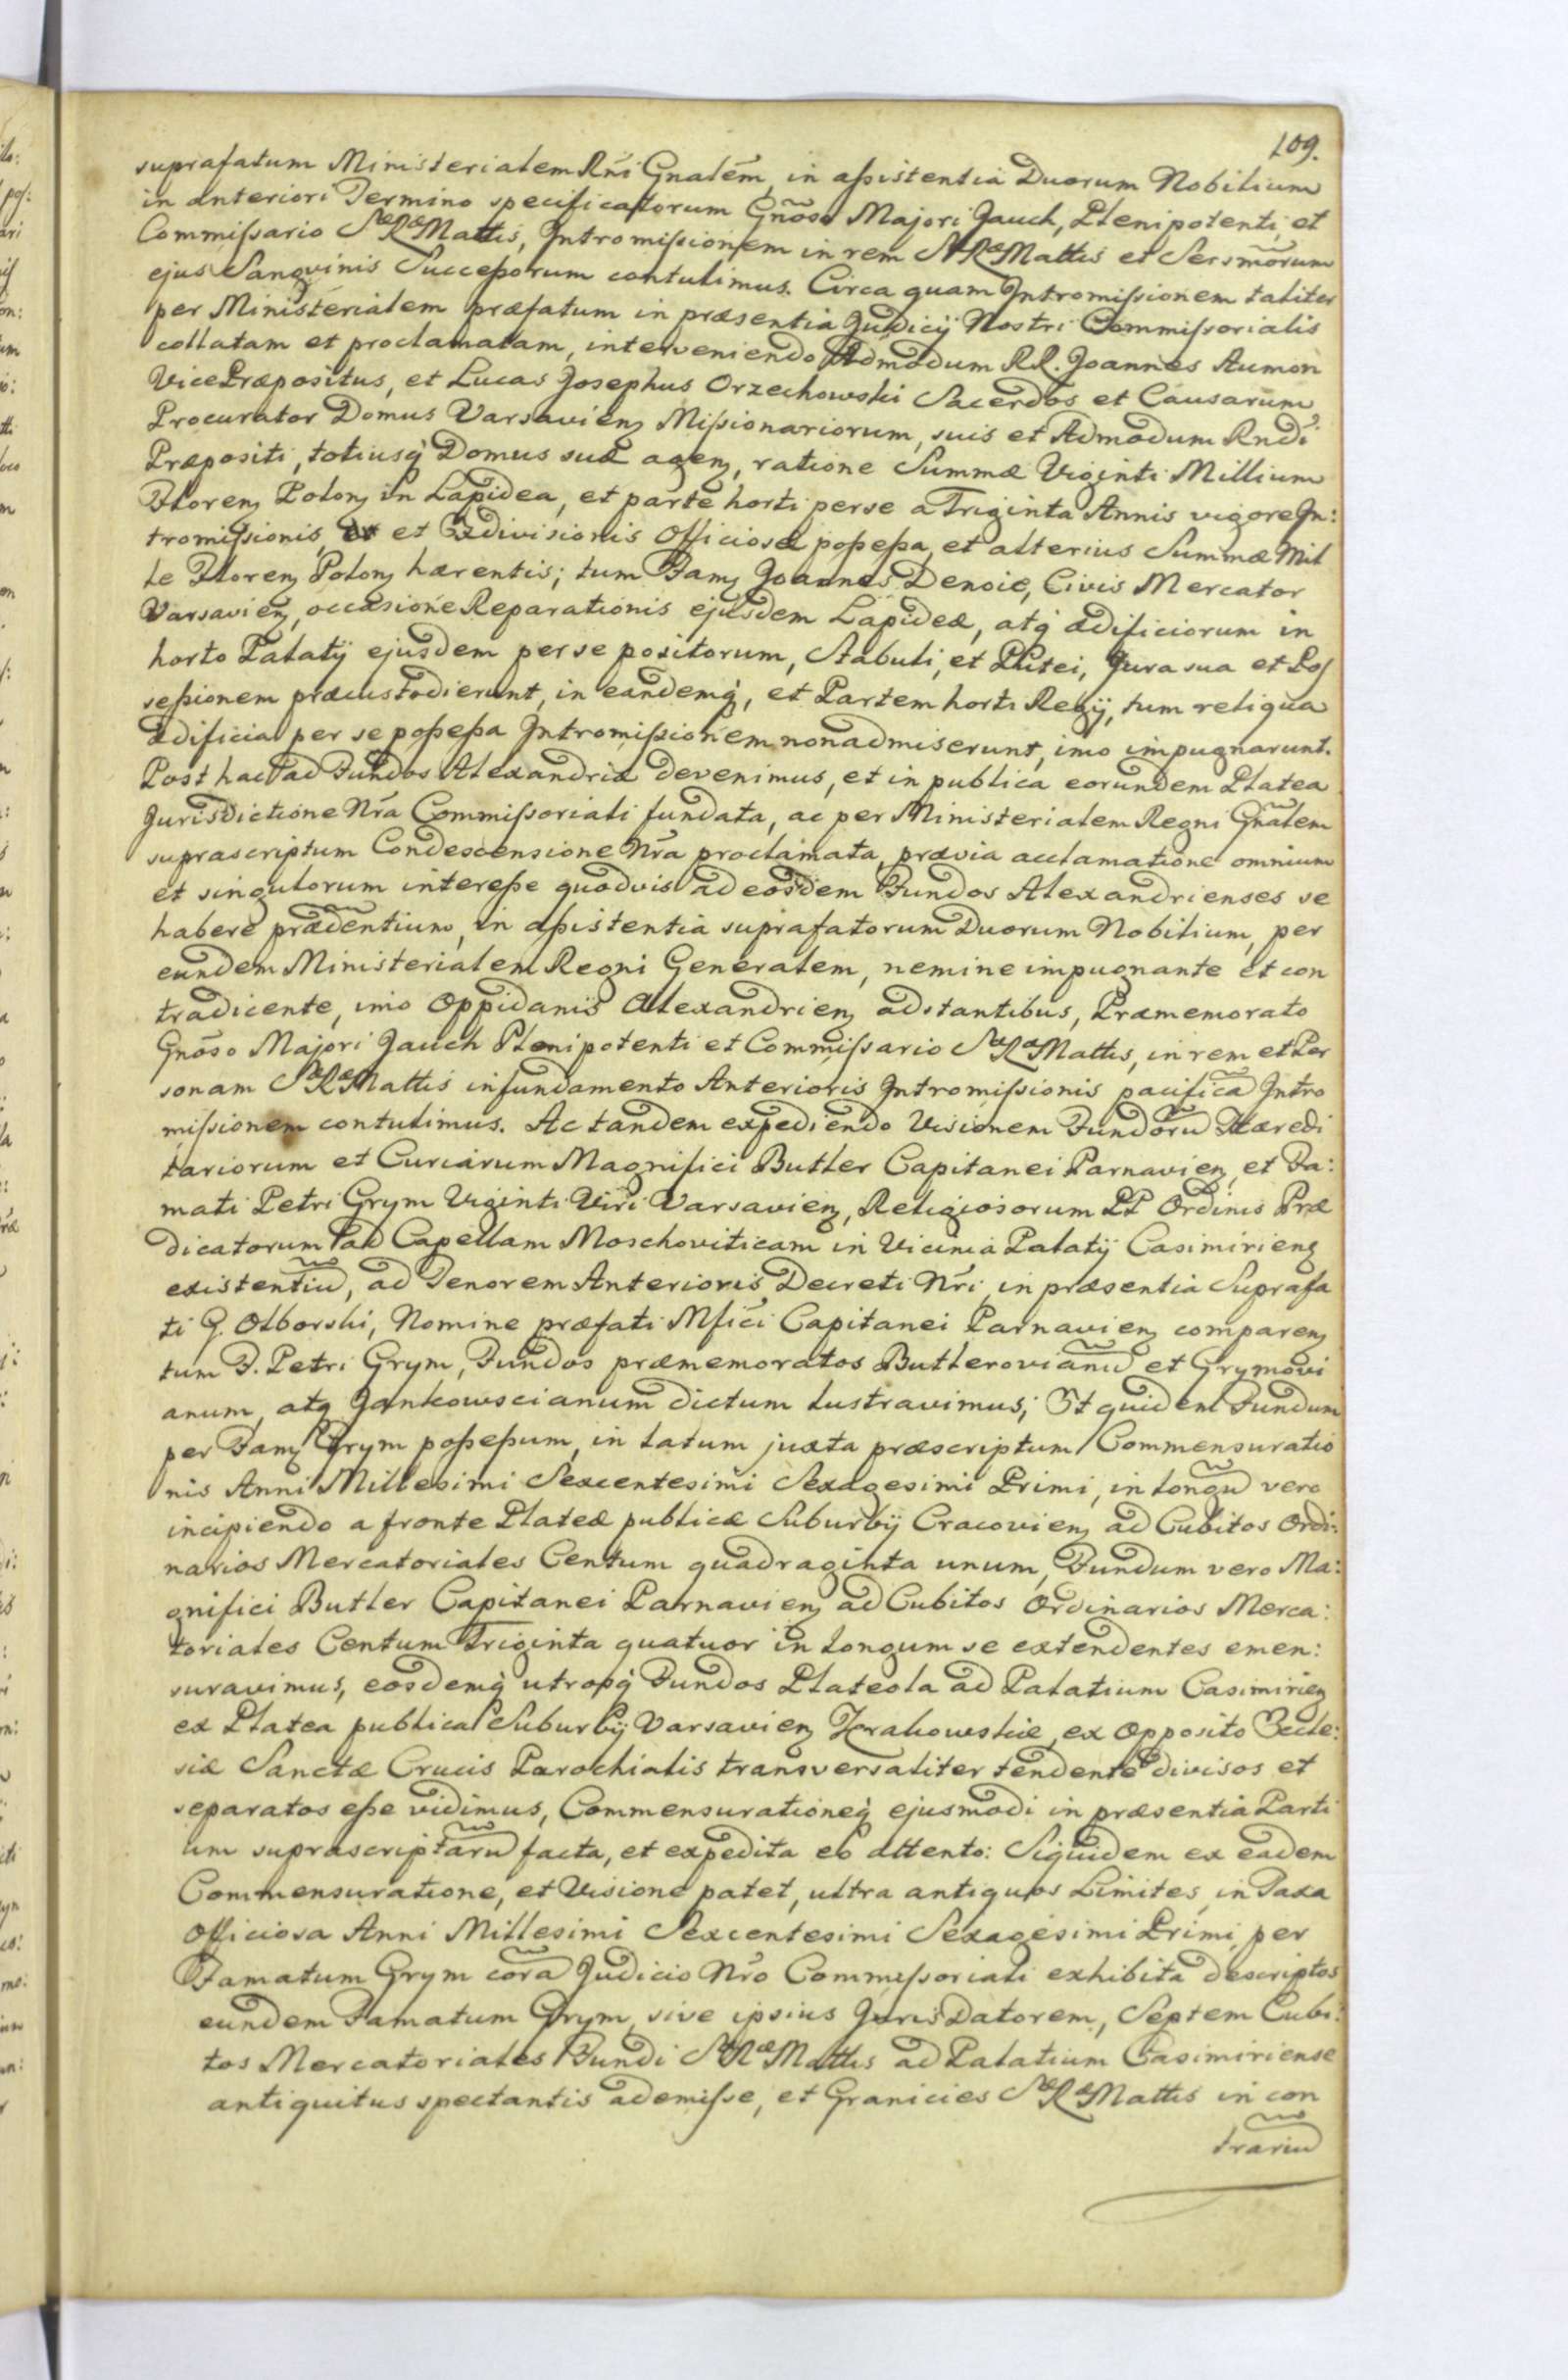 109.
suprafatum Ministerialem Rni Gnalem, in assistentia Duorum Nobilium
in anteriori Termino specificatorum Gnoso Majori Jauch, Plenipotenti et
Commissario SæRæMattis, Intromissionem in rem SæRæMattis et Sersmorum
ejus Sangvinis Successorum contulimus. Circa quam Intromissionem taliter
per Ministerialem præfatum in præsentia Judicij Nostri Commissorialis
collatam et proclamatam, interveniendo Admodum RR. Joannes Aumon
VicePræpositus, et Lucas Josephus Orzechowski Sacerdos et Causarum
Procurator Domus Varsavien Missionariorum, suis et Admodum Rndi
Præpositi, totiusq Domus suæ agen, ratione Summæ Viginti Millium
Floren Polon in Lapidea, et parte horti per se a Triginta Annis vigore In:
tromissionis, et Exdivisionis Officiosæ possessa, et alterius Summæ Mil
le Floren Polon hærentis; tum Fam Joannes Denoie, Civis Mercator
Varsavien, occasione Reparationis ejusdem Lapideæ, atq ædificiorum in
horto Palatij ejusdem per se positorum, Stabuli, et Putei, Jura sua et Pos
sessionem præcustodierunt, in eandemq, et Partem horti Regij, tum reliqua
ædificia per se possessa Intromissionem non admiserunt, imo impugnarunt.
Post hac ad Fundos Alexandriæ devenimus, et in publica eorundem Platea
Jurisdictione Nra Commissoriali fundata, ac per Ministerialem Regni Gnalem
suprascriptum Condescensione Nra proclamata, prævia acclamatione omnium
et singulorum interesse quodvis ad eosdem Fundos Alexandrienses se
habere prædentium, in assistentia suprafatorum Duorum Nobilium, per
eundem Ministerialem Regni Generalem, nemine impugnante et con
tradicente, imo Oppidanis Alexandrien adstantibus, Præmemorato
Gnoso Majori Jauch Plenipotenti et Commissario SæRæMattis, in rem et Per
sonam SæRæMattis in fundamento Anterioris Intromissionis pacifica Intro
missionem contulimus. Ac tandem expediendo Visionem Fundoru Hæredi
tariorum et Curiarum Magnifici Butler Capitanei Parnavien, et Fa:
mati Petri Grym Viginti Viri Varsavien, Religiosorum PP Ordinis Præ
dicatorum ad Capellam Moschoviticam in Vicinia Palatij Casimirien
existentiu, ad Tenorem Anterioris Decreti Nri, in præsentia Suprafa
ti G. Olborski, Nomine præfati Mfici Capitanei Parnavien comparen
tum F. Petri Grym, Fundos præmemoratos Butlerovianu et Grymovi
anum, atq Jankowscianum dictum lustravimus; Et quidem Fundum
per Fam Grym possessum, in latum juxta præscriptum Commensuratio
nis Anni Millesimi Sexcentesimi Sexagesimi Primi, in longu vero
incipiendo a fronte Plateæ publicæ Suburbij Cracovien ad Cubitos Ordi:
narios Mercatoriales Centum quadraginta unum, Fundum vero Ma:
gnifici Butler Capitanei Parnavien ad Cubitos Ordinarios Merca:
toriales Centum Triginta quatuor in longum se extendentes emen:
suravimus, eosdemq utrosq Fundos Plateola ad Palatium Casimirien
ex Platea publica Suburbij Varsavien Krakowskie, ex Opposito Eccle:
siæ Sanctæ Crucis Parochialis transversaliter tendente divisos et
separatos esse vidimus, Commensurationeq ejusmodi in præsentia Parti
um suprascriptaru facta, et expedita eo attento: Siquidem ex eadem
Commensuratione, et Visione patet, ultra antiquos Limites, in Taxa
Officiosa Anni Millesimi Sexcentesimi Sexagesimi Primi per
Famatum Grym cora Judicio Nro Commissoriali exhibita descriptos
eundem Famatum Grym, sive ipsius Juris Datorem, Septem Cubi:
tos Mercatoriales Fundi SæRæMattis ad Palatium Casimiriense
antiquitus spectantis ademisse, et Granicies SæRæMattis in con
trariu